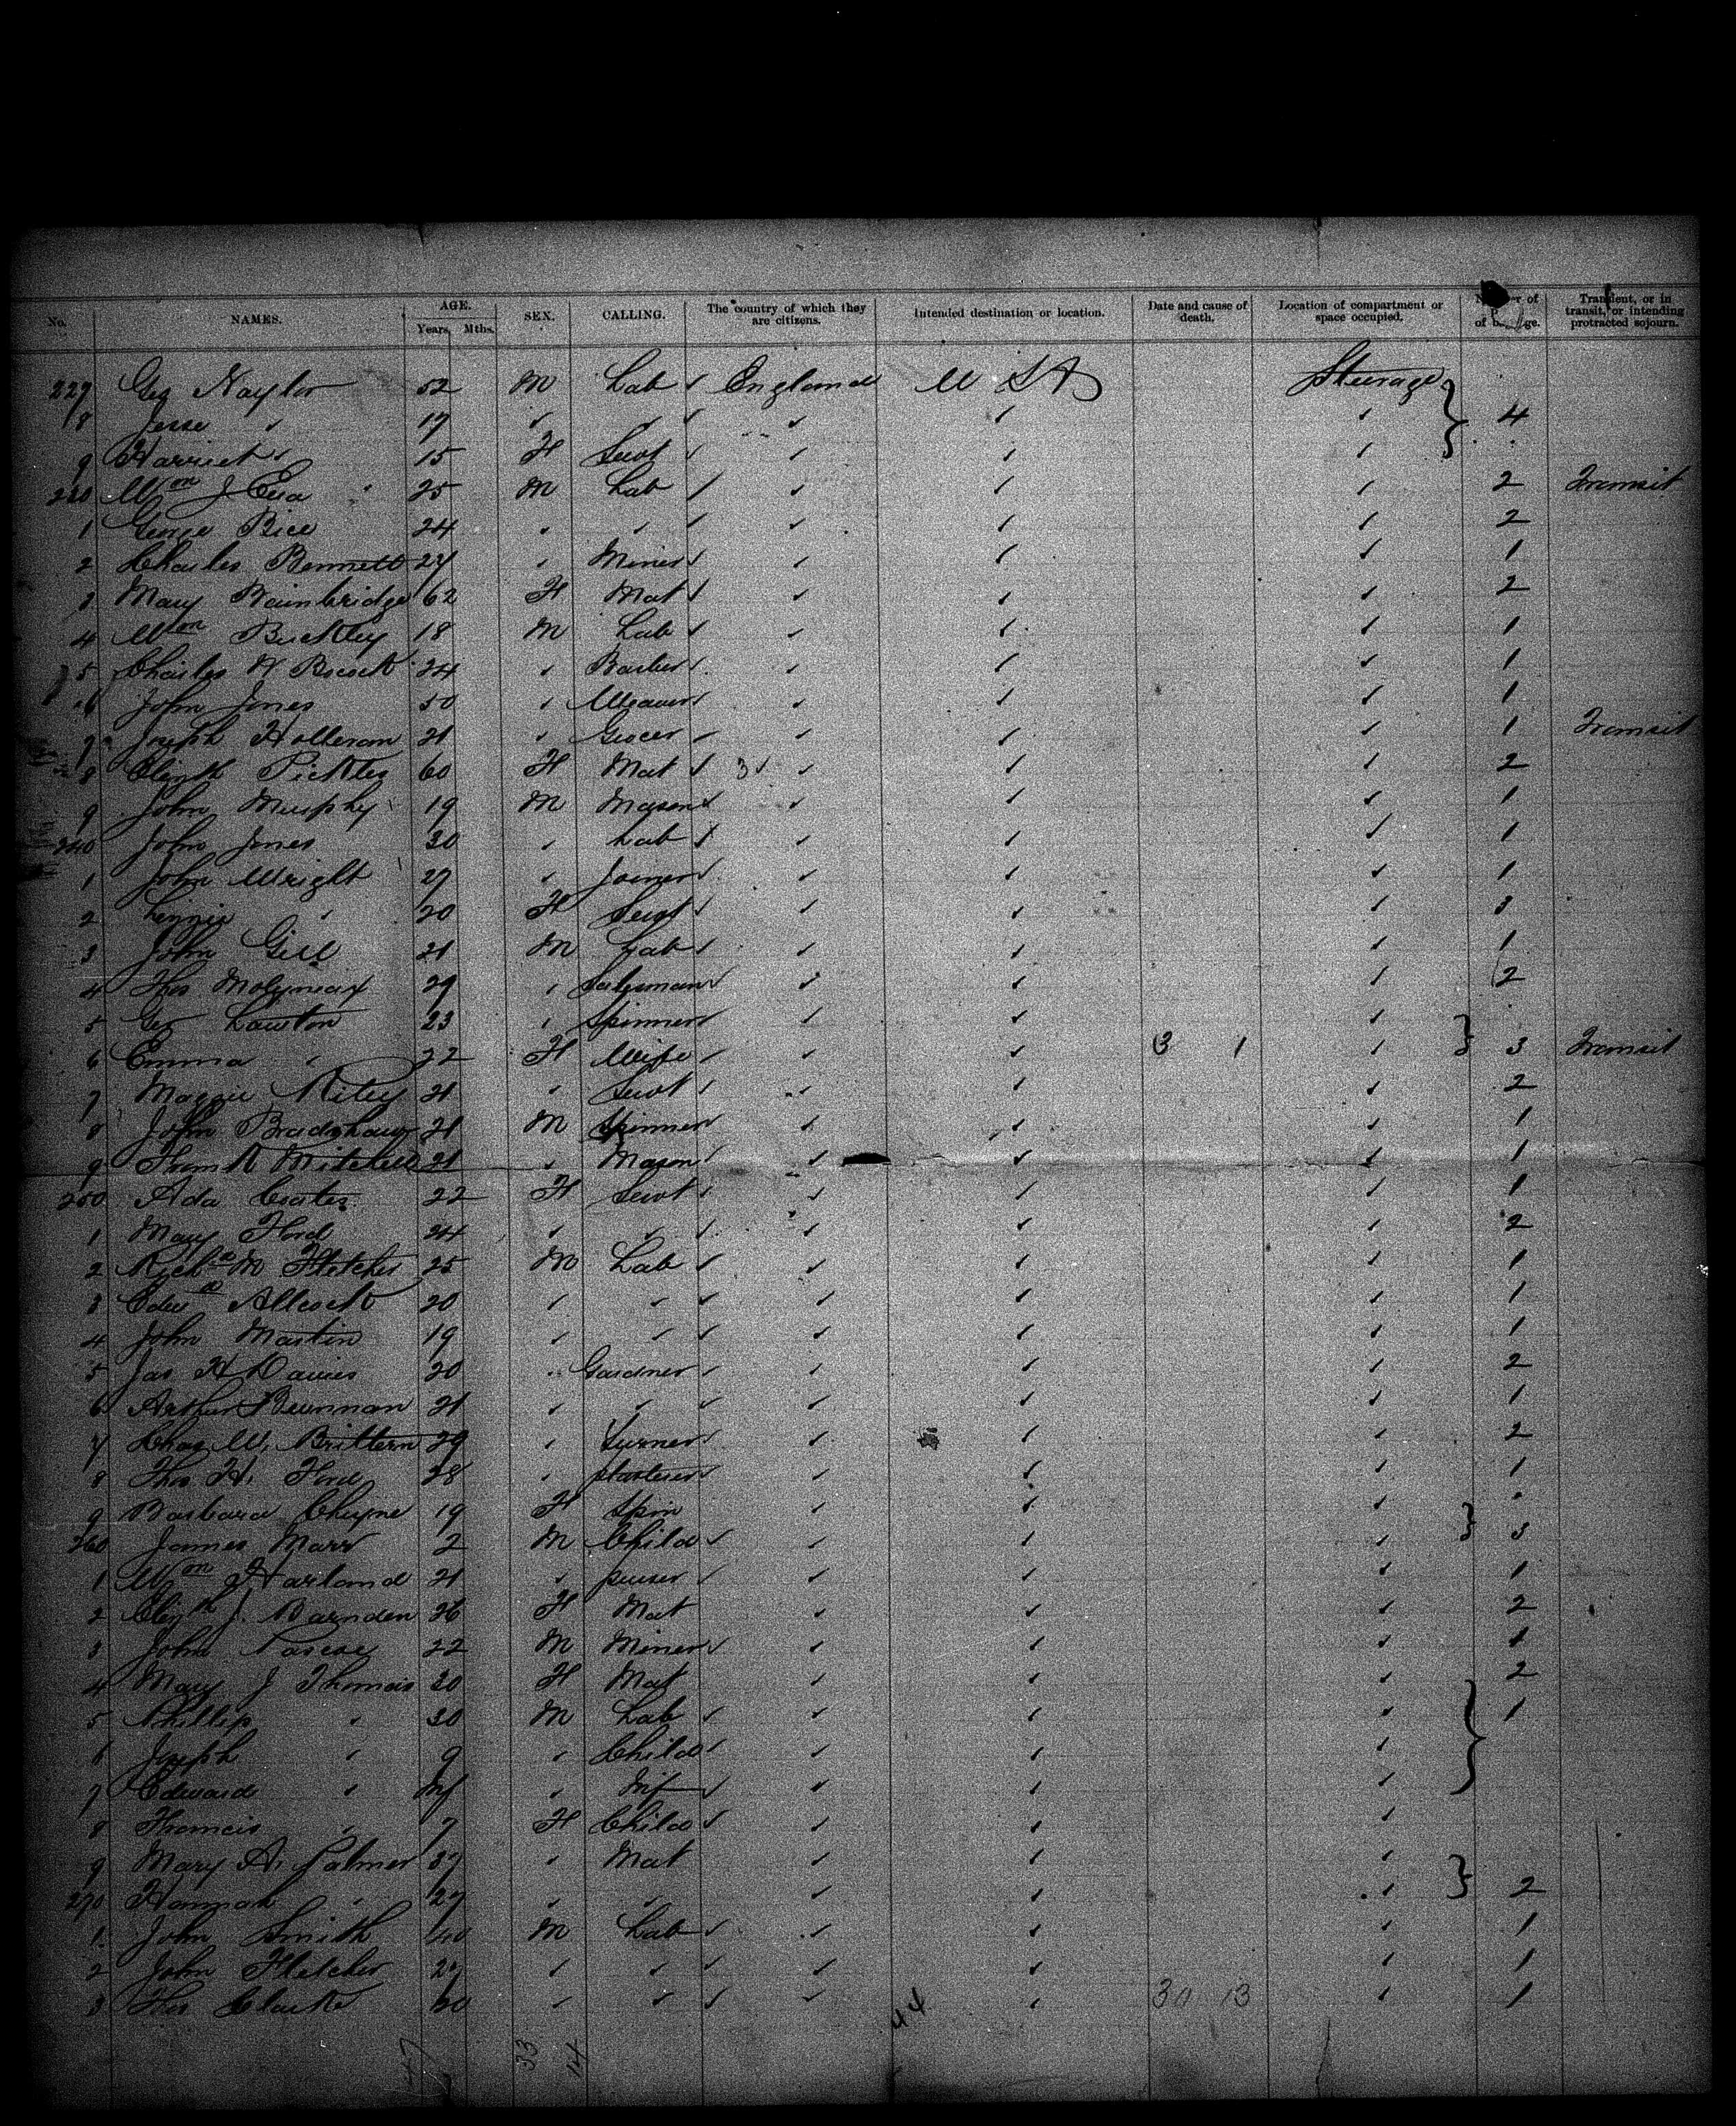 No. NAMES. AGE. Years. Mths. SEX. CALLING. The country of which they are citizens. Intended destination or location. Date and cause of death. Location of compartment or space occupied. of Transient, or in transit, or intending protracted sojourn.
227 Geo Naylor 52 M Lab ✓ England U S A Steerage
8 Jesse " 17 ✓ ✓ ✓ ✓ ✓ ✓ } 4
9 Harriet " 15 F Servt ✓ ✓ ✓ ✓
230 Wm J 25 M Lab ✓ ✓ ✓ ✓ 2 Transit
1 George Bice 24 " " ✓ ✓ ✓ ✓ 2
2 Charles Bennetts 24 " Miner ✓ ✓ ✓ ✓ 1
3 Mary Bainbridge 62 F Mat ✓ ✓ ✓ ✓ 2
4 Wm Buckley 18 M Lab ✓ ✓ ✓ ✓ 1
5 Charles H 24 " Barber ✓ ✓ ✓ ✓ 1
6 John Jones 50 " Weaver ✓ ✓ ✓ ✓ 1
7 Joseph Holleran 21 " Grocer ✓ ✓ ✓ ✓ 1 Transit
8 Elizth Pickles 60 F Mat ✓ 3 ✓ ✓ ✓ ✓ 2
9 John Murphy 19 M Mason ✓ ✓ ✓ ✓ 1
240 John Jones 30 " Lab ✓ ✓ ✓ 1
1 John Wright 27 " Joiner ✓ ✓ ✓ ✓ 1
2 Lizzie " 20 F Servt ✓ ✓ ✓ ✓
3 John Gill 21 M Lab ✓ ✓ ✓ ✓ 1
4 Thos Molyneaux 29 " Salesman ✓ ✓ ✓ ✓ 2
5 Geo Lawton 23 " Spinner ✓ ✓ ✓ ✓
6 Emma " 22 F Wife ✓ ✓ ✓ 3 1 ✓ } 3 Transit
7 Maggie Riley 21 " Servt ✓ ✓ ✓ ✓ 2
8 John Bradshaw 21 M Spinner ✓ ✓ ✓ ✓ 1
9 Frank Mitchell 21 " Mason ✓ ✓ ✓ ✓ 1
250 Ada Coates 22 F Servt ✓ ✓ ✓ ✓ 1
1 Mary Ford 24 " " ✓ ✓ ✓ ✓ 2
2 Richd M Fletcher 25 M Lab ✓ ✓ ✓ ✓ 1
3 Edwd Allcock 20 " " ✓ ✓ ✓ ✓ 1
4 John Martin 19 " " ✓ ✓ ✓ ✓ 1
5 Jas H Davies 20 " Gardner ✓ ✓ ✓ ✓ 2
6 Arthur Brennan 21 " " ✓ ✓ ✓ ✓ 1
7 Chas W. Brittern 29 " Turner ✓ ✓ ✓ ✓ 2
8 Thos H. Ford 28 " plasterer ✓ ✓ ✓ ✓ 1
9 Barbara Cheyne 19 F Spin ✓ ✓ ✓
260 James Marr 2 M Child ✓ ✓ ✓ ✓ } 3
1 Wm J Harland 21 " ✓ ✓ ✓ ✓ 1
2 Elizth J. Barnden 26 F Mat ✓ ✓ ✓ 2
3 John Pascoe 22 M Miner ✓ ✓ ✓ ✓ 1
4 Mary J Thomas 30 F Mat ✓ ✓ ✓ 2
5 Phillip " 30 M Lab ✓ ✓ ✓ ✓ 1
6 Joseph " 9 " Child ✓ ✓ ✓ ✓
7 Edward " Inf " Inf ✓ ✓ ✓ ✓
8 Francis " 7 F Child ✓ ✓ ✓ ✓
9 Mary A. Palmer 37 " Mat ✓ ✓ ✓
270 Hannah " 27 " " ✓ ✓ ✓ } 2
1 John Smith 40 M Lab ✓ ✓ ✓ ✓ 1
2 John Fletcher 27 " " ✓ ✓ ✓ ✓ 1
3 Thos Clarke 60 " " ✓ ✓ ✓ 30 13 ✓ 1
47 33 14 44